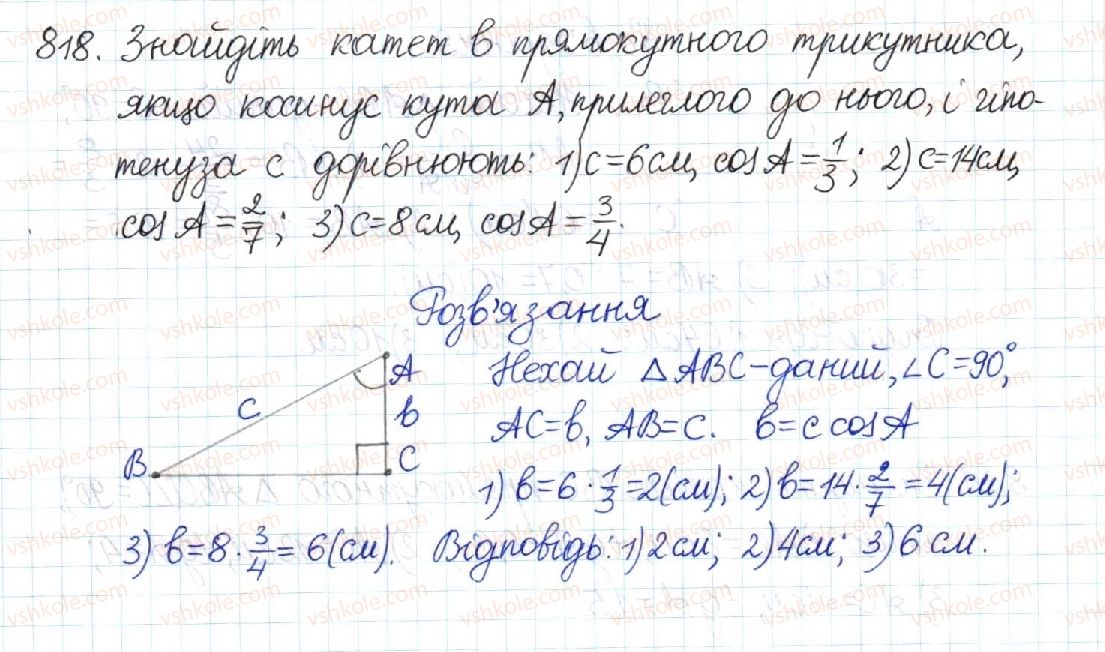 818. Знайдіть катет b прямокутного трикутника,
якщо косинус кута A, прилеглого до нього, і гіпо-
тенуза c дорівнюють: 1) c=6см, cos A=1/3; 2) c=14см,
cos A=2/7; 3) c=8см, cos A=3/4.
Розв'язання
Нехай △ABC-даний, ∠C=90°,
AC=b, AB=c. b=c cos A
1) b=6·1/3=2(см); 2) b=14·2/7=4(см);
3) b=8·3/4=6(см). Відповідь: 1) 2см; 2) 4см; 3) 6 см.
A
c
b
B
C
vshkole.com